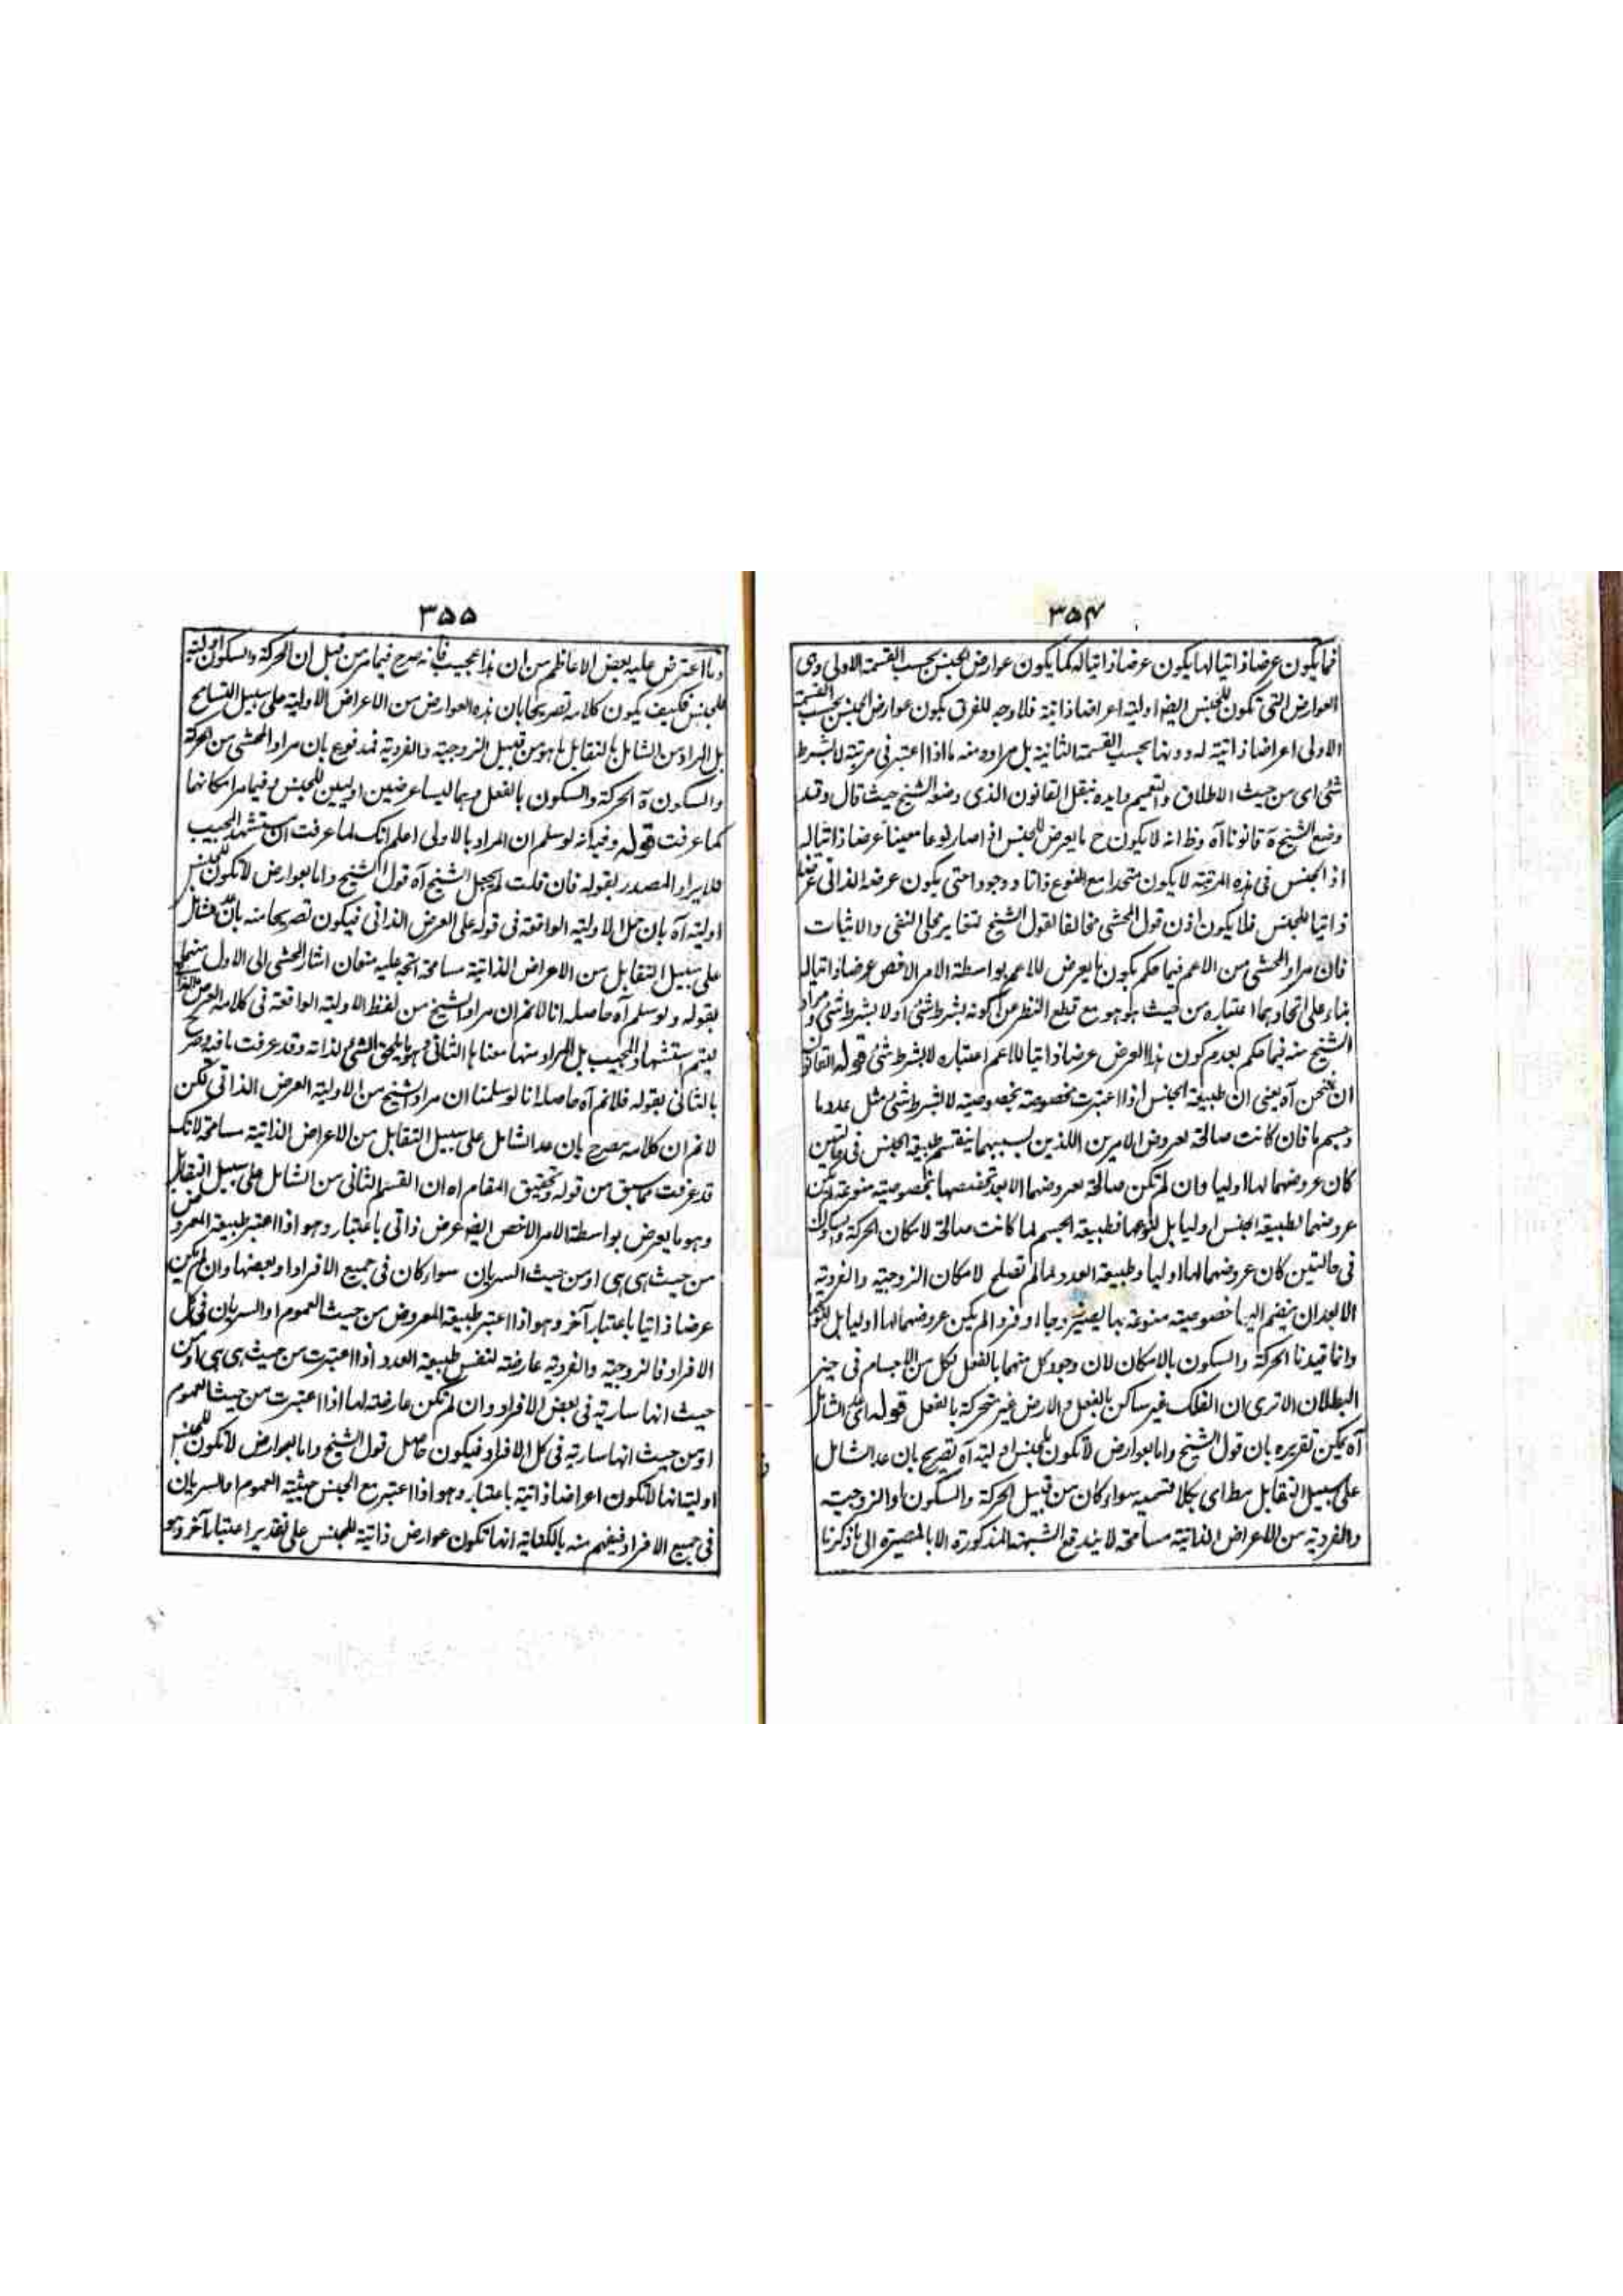 ۳۵۴
فما يكون عرضا ذاتيا لها يكون عرضا ذاتيا له كما يكون عوارض الجنس بحسب القسمة الاولى وهى
العوارض التى تكون للجنس ايضا اولية اعراضا ذاتية فلا وجه للفرق بكون عوارض الجنس بحسب القسمة
الاولى اعراضا ذاتية له دونها بحسب القسمة الثانية بل مراده منه ما اذا اعتبر فى مرتبة لا بشرط
شئ اى من حيث الاطلاق والتعميم وايده بنقل القانون الذى وضعه الشيخ حيث قال وقد
وضع الشيخ ة قانونا آه وظ انه لا يكون ح ما يعرض للجنس اذا صار نوعا معينا عرضا ذاتيا له
اذ الجنس فى هذه المرتبة لا يكون متحدا مع النوع ذاتا ووجودا حتى يكون عرضه الذاتى عرضا
ذاتيا للجنس فلا يكون اذن قول المحشى مخالفا لقول الشيخ لتغاير محلى النفى والاثبات
فان مراد المحشى من الاعم فيما حكم بكون ما يعرض للاعم بواسطة الامر الاخص عرضا ذاتيا له
بناء على اتحادهما اعتباره من حيث هو هو مع قطع النظر عن كونه بشرط شئ او لا بشرط شئ ومراد
الشيخ منه فيما حكم بعدم كون هذا العرض عرضا ذاتيا للاعم اعتباره لا بشرط شئ قوله القانون
ان نمتحن آه يعنى ان طبيعة الجنس اذا اعتبرت مخصوصة بخصوصية لا بشرط شئ مثل عدد ما
وجسم ما فان كانت صالحة لعروض الامرين اللذين بسببهما ينقسم طبيعة الجنس فى حالتين
كان عروضهما لها اوليا وان لم تكن صالحة لعروضهما الا بعد تخصصها بخصوصية منوعة لم يكن
عروضهما لطبيعة الجنس اوليا بل لنوعها فطبيعة الجسم لما كانت صالحة لامكان الحركة والسكون
فى حالتين كان عروضهما لها اوليا وطبيعة العدد لما لم تصلح لامكان الزوجية والفردية
الا بعد ان ينضم اليها خصوصية منوعة بها يصير زوجا او فردا لم يكن عروضهما لها اوليا بل لنوعها
وانما قيدنا الحركة والسكون بالامكان لان وجود كل منهما بالفعل لكل من الاجسام فى حيز
البطلان الا ترى ان الفلك غير ساكن بالفعل والارض غير متحركة بالفعل قوله اى على الشامل
آه يمكن تقريره بان قول الشيخ واما بعوارض لا تكون للجنس اولية آه تصريح بان عد الشامل
على سبيل التقابل مط اى بكلا قسميه سواء كان من قبيل الحركة والسكون او الزوجية
والفردية من الاعراض الذاتية مسامحة لا يندفع الشبهة المذكورة الا بالمصيرة الى ما ذكرنا
۳۵۵
وما اعترض عليه بعض الاعاظم من ان هذا عجيب فانه صرح فيما مر من قبل ان الحركة والسكون اولية
للجنس فكيف يكون كلامه تصريحا بان هذه العوارض من الاعراض الاولية على سبيل التسامح
بل المراد من الشامل بالتقابل ما هو من قبيل الزوجية والفردية فمدفوع بان مراد المحشى من الحركة
والسكون ة الحركة والسكون بالفعل وهما ليسا عرضين اوليين للجنس وفيما مر امكانهما
كما عرفت قوله وفيه انه لو سلم ان المراد بالاولى اعلم انك لما عرفت ان مستشهد المجيب
للايراد المصدر بقوله فان قلت لم يجعل الشيخ آه قول الشيخ واما بعوارض لا تكون للجنس
اولية آه بان حمل الاولية الواقعة فى قوله على العرض الذاتى فيكون تصريحا منه بان عد الشامل
على سبيل التقابل من الاعراض الذاتية مسامحة اتجه عليه منعان اشار المحشى الى الاول منهما
بقوله ولو سلم آه حاصله انا لا نم ان مراد الشيخ من لفظ الاولية الواقعة فى كلامه العرض الذاتى
ليتم استشهاد المجيب بل المراد منها معناها الثانى وهو ما يلحق الشئ لذاته وقد عرفت ما فيه وصرح
بالثانى بقوله فلا نم آه حاصله انا لو سلمنا ان مراد الشيخ من الاولية العرض الذاتى لكن
لا نم ان كلامه مصرح بان عد الشامل على سبيل التقابل من الاعراض الذاتية مسامحة لانك
قد عرفت مما سبق من قوله وتحقيق المقام اه ان القسم الثانى من الشامل على سبيل التقابل
وهو ما يعرض بواسطة الامر الاخص ايضا عرض ذاتى باعتبار وهو اذا اعتبر طبيعة المعروض
من حيث هى هى او من حيث السريان سواء كان فى جميع الافراد او بعضها وان لم يكن
عرضا ذاتيا باعتبار آخر وهو اذا اعتبر طبيعة المعروض من حيث العموم او السريان فى كل
الافراد فالزوجية والفردية عارضة لنفس طبيعة العدد اذا اعتبرت من حيث هى هى او من
حيث انها سارية فى بعض الافراد وان لم تكن عارضة لها اذا اعتبرت من حيث العموم
او من حيث انها سارية فى كل الافراد فيكون حاصل قول الشيخ واما بعوارض لا تكون للجنس
اولية انها لا تكون اعراضا ذاتية باعتبار وهو اذا اعتبر مع الجنس حيثية العموم او السريان
فى جميع الافراد فيفهم منه بالكناية انها تكون عوارض ذاتية للجنس على تقدير اعتبار آخر وهو